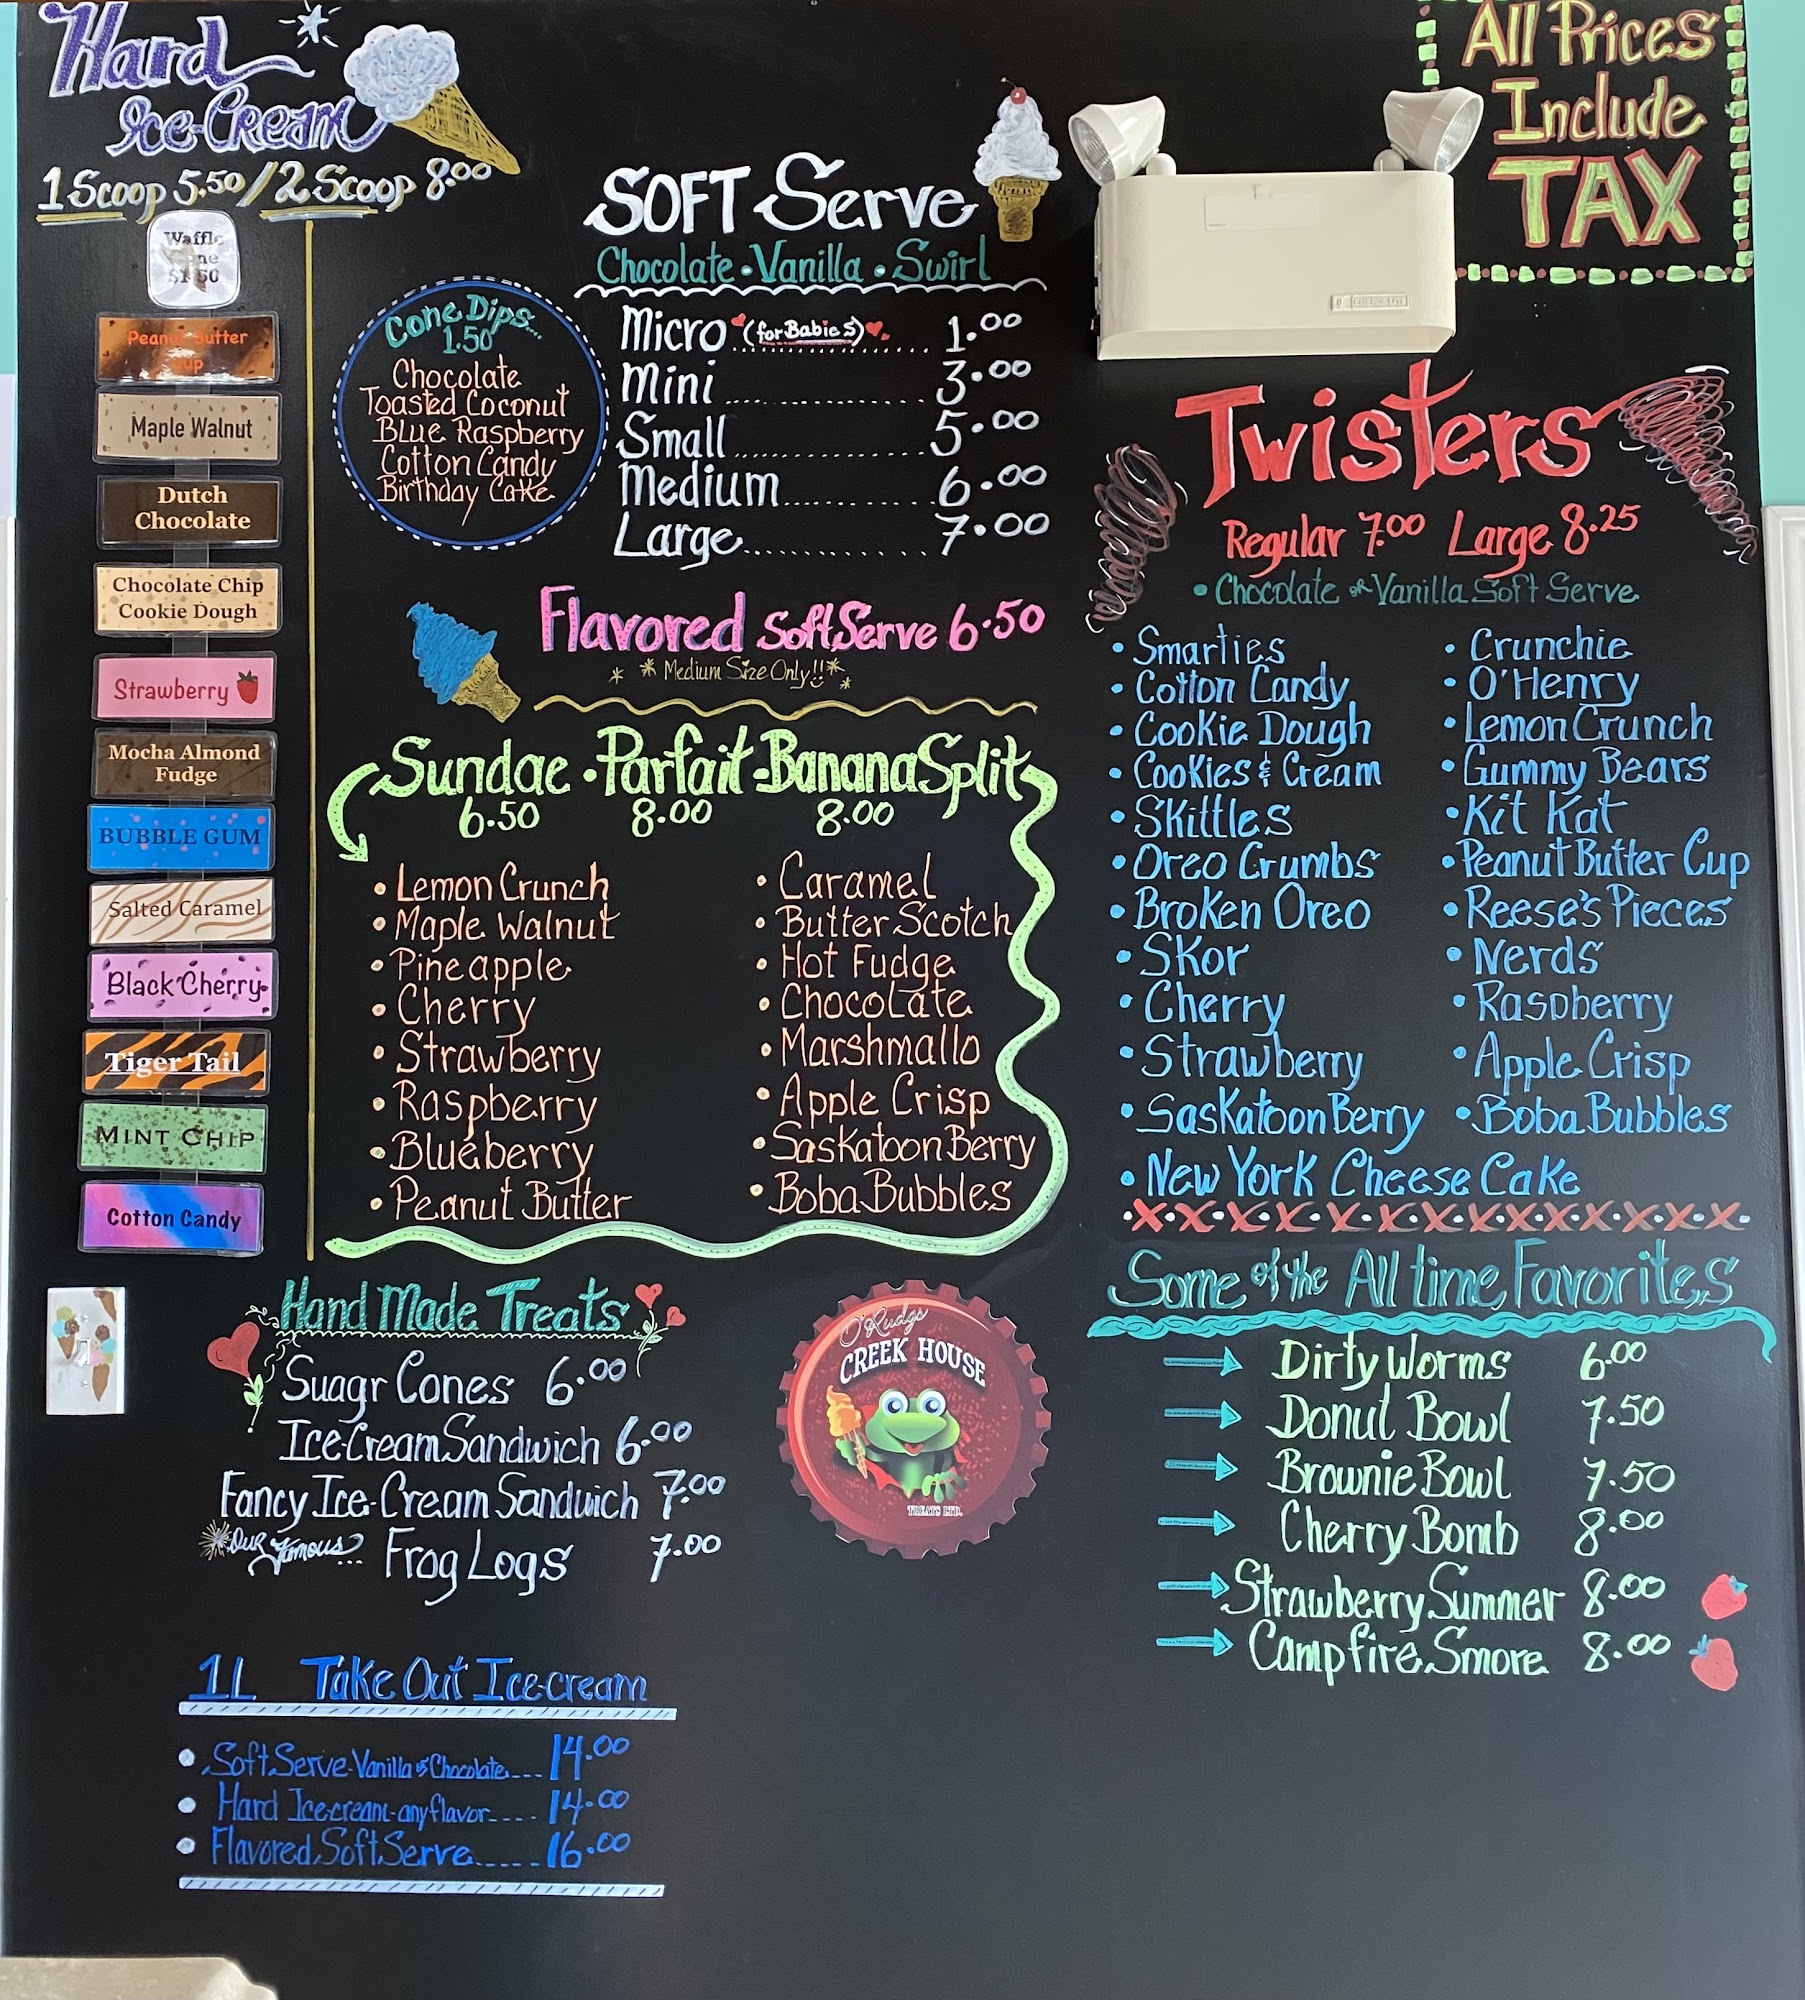 Hard
Ice-Cream
1 Scoop 5.50 / 2 Scoop 8.00
Waffle
$1.50
Peanut Butter
Cup
Maple Walnut
Dutch
Chocolate
Chocolate Chip
Cookie Dough
Strawberry
Mocha Almond
Fudge
BUBBLE GUM
Salted Caramel
Black Cherry
Tiger Tail
MINT CHIP
Cotton Candy
SOFT Serve
Chocolate • Vanilla • Swirl
Cone Dips...
1.50
Chocolate
Toasted Coconut
Blue Raspberry
Cotton Candy
Birthday Cake
Micro (for Babies) ........ 1.00
Mini ........ 3.00
Small ........ 5.00
Medium ........ 6.00
Large ........ 7.00
Flavored Soft Serve 6.50
* * Medium Size Only!! * *
Sundae • Parfait - Banana Split
6.50 8.00 8.00
• Lemon Crunch
• Maple Walnut
• Pineapple
• Cherry
• Strawberry
• Raspberry
• Blueberry
• Peanut Butter
• Caramel
• Butter Scotch
• Hot Fudge
• Chocolate
• Marshmallo
• Apple Crisp
• Saskatoon Berry
• Boba Bubbles
All Prices
Include
TAX
Twisters
Regular 7.00 Large 8.25
• Chocolate or Vanilla Soft Serve
• Smarties
• Cotton Candy
• Cookie Dough
• Cookies & Cream
• Skittles
• Oreo Crumbs
• Broken Oreo
• Skor
• Cherry
• Strawberry
• Saskatoon Berry
• New York Cheese Cake
• Crunchie
• O'Henry
• Lemon Crunch
• Gummy Bears
• Kit Kat
• Peanut Butter Cup
• Reese's Pieces
• Nerds
• Raspberry
• Apple Crisp
• Boba Bubbles
Some of the All time Favorites
Dirty Worms 6.00
Donut Bowl 7.50
Brownie Bowl 7.50
Cherry Bomb 8.00
Strawberry Summer 8.00
Campfire Smore 8.00
Hand Made Treats
Suagr Cones 6.00
Ice-Cream Sandwich 6.00
Fancy Ice-Cream Sandwich 7.00
Our Famous... Frog Logs 7.00
O'Rudge
CREEK HOUSE
TREATS LTD.
1L Take Out Ice-cream
• Soft Serve-Vanilla or Chocolate.... 14.00
• Hard Ice-cream-any flavor.... 14.00
• Flavored Soft Serve..... 16.00